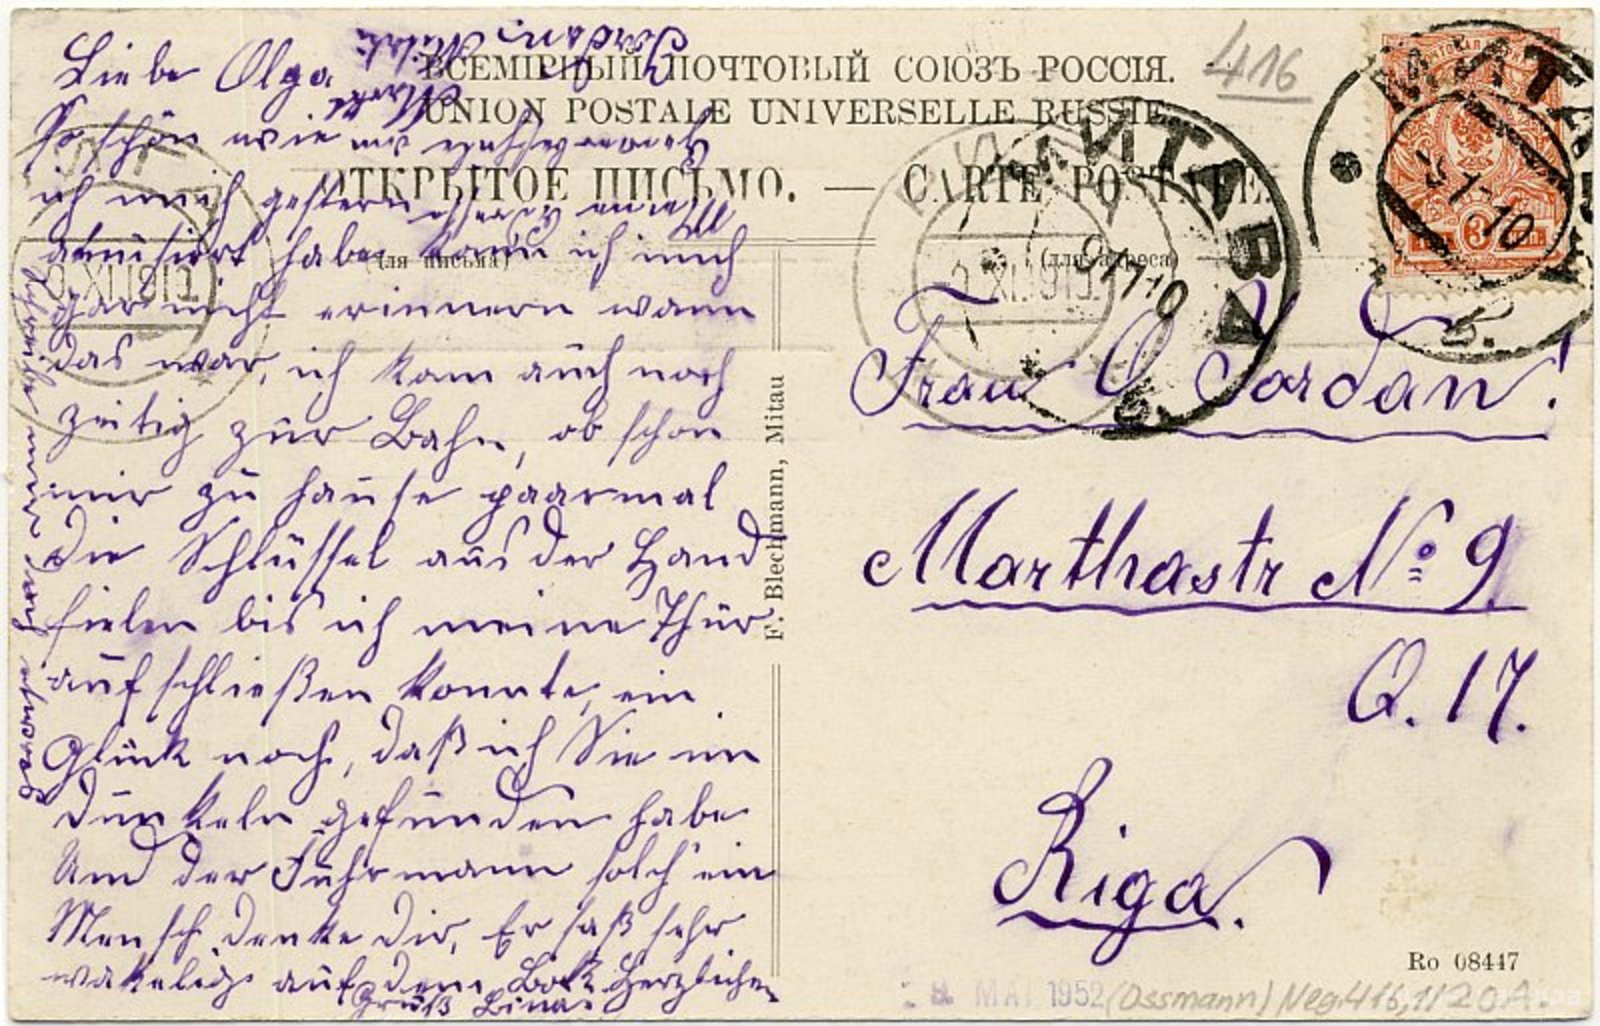 ВСЕМІРНЫЙ ПОЧТОВЫЙ СОЮЗЪ РОССІЯ.
UNION POSTALE UNIVERSELLE RUSSIE.
ОТКРЫТОЕ ПИСЬМО. — CARTE POSTALE.
(для письма)
(для адреса)
416
МИТАВА
9 11 10
Б.
МИТАВА
11 10
Б.
3
Liebe Olga
So schön wie
ich mich gestern
amusirt habe kann ich mich
gar nicht erinnern wann
das war, ich kam auch noch
zeitig zur Bahn, ob schon
mir zu hause paarmal
die Schlüssel aus der Hand
fielen bis ich meine Thür
aufschließen konnte, ein
Glück noch, daß ich Sie im
dunkeln gefunden habe
Und der Fuhrmann solch ein
Mensch denke dir, Er saß sehr
wakelig auf dem Bok Herzlichen
Gruß Lina
Schreibe mir doch etwas
Meine Adresse
F. Blechmann, Mitau
Frau O Jordan!
Marthastr No 9.
Q. 17.
Riga.
Ro 08447
8. MAI 1952 (Ossmann) Neg. 416,1/20A.